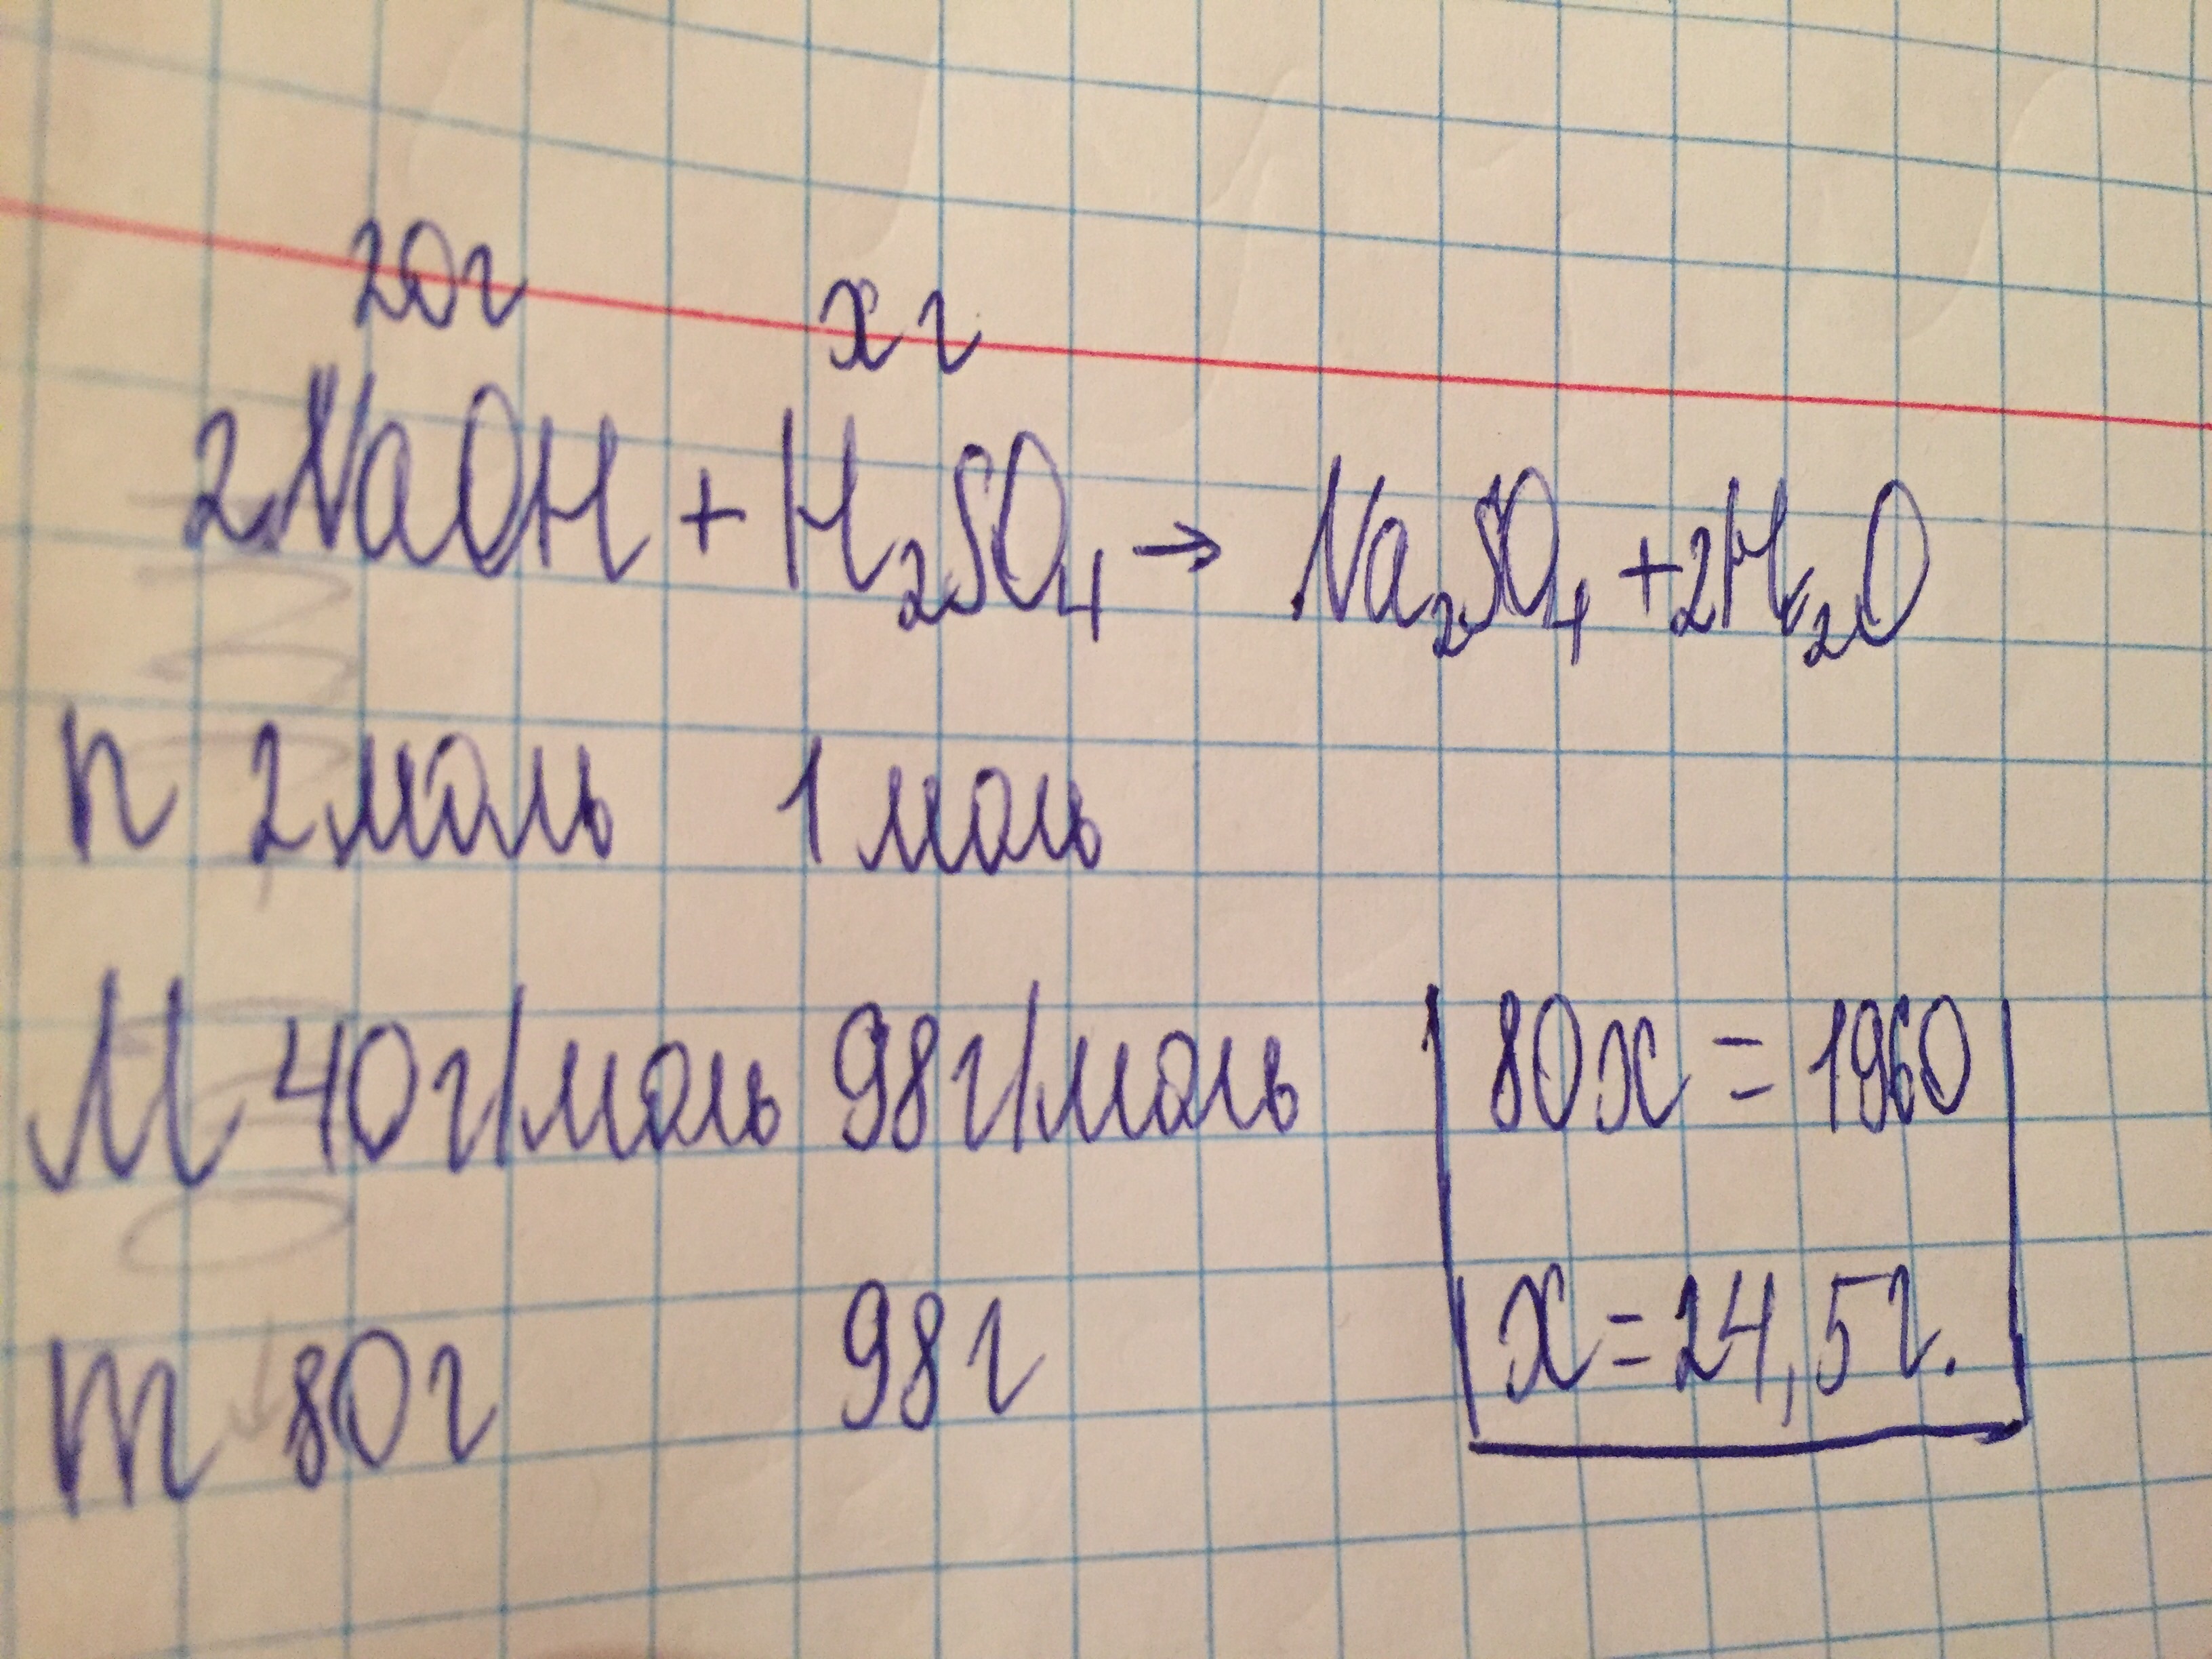 20г xг
2NaOH + H₂SO₄ → Na₂SO₄ + 2H₂O
n 2 моль 1 моль
M 40 г/моль 98 г/моль
m 80 г 98 г
80x = 1960
x = 24,5 г.